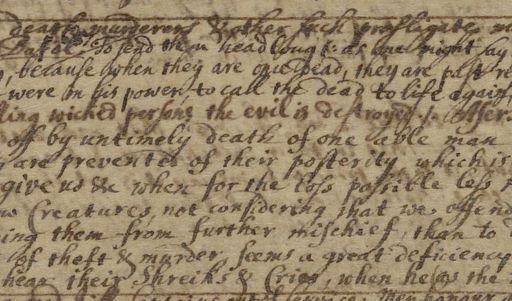 death murderers & other such profligate
to send them head long (: as one might say
, because when they are once dead, they are past re
were in his power to call the dead to life again
ling wicked persons the evil is destroyed :
off by untimely death of one able man
y are prevented of their posterity which is
give us &c when for the loss possible less
w Creatures, not considering that we offend
ing them from further mischief, than to
of theft & murder, seems a great deficiency
hear their Shreiks & Cries, when he is the